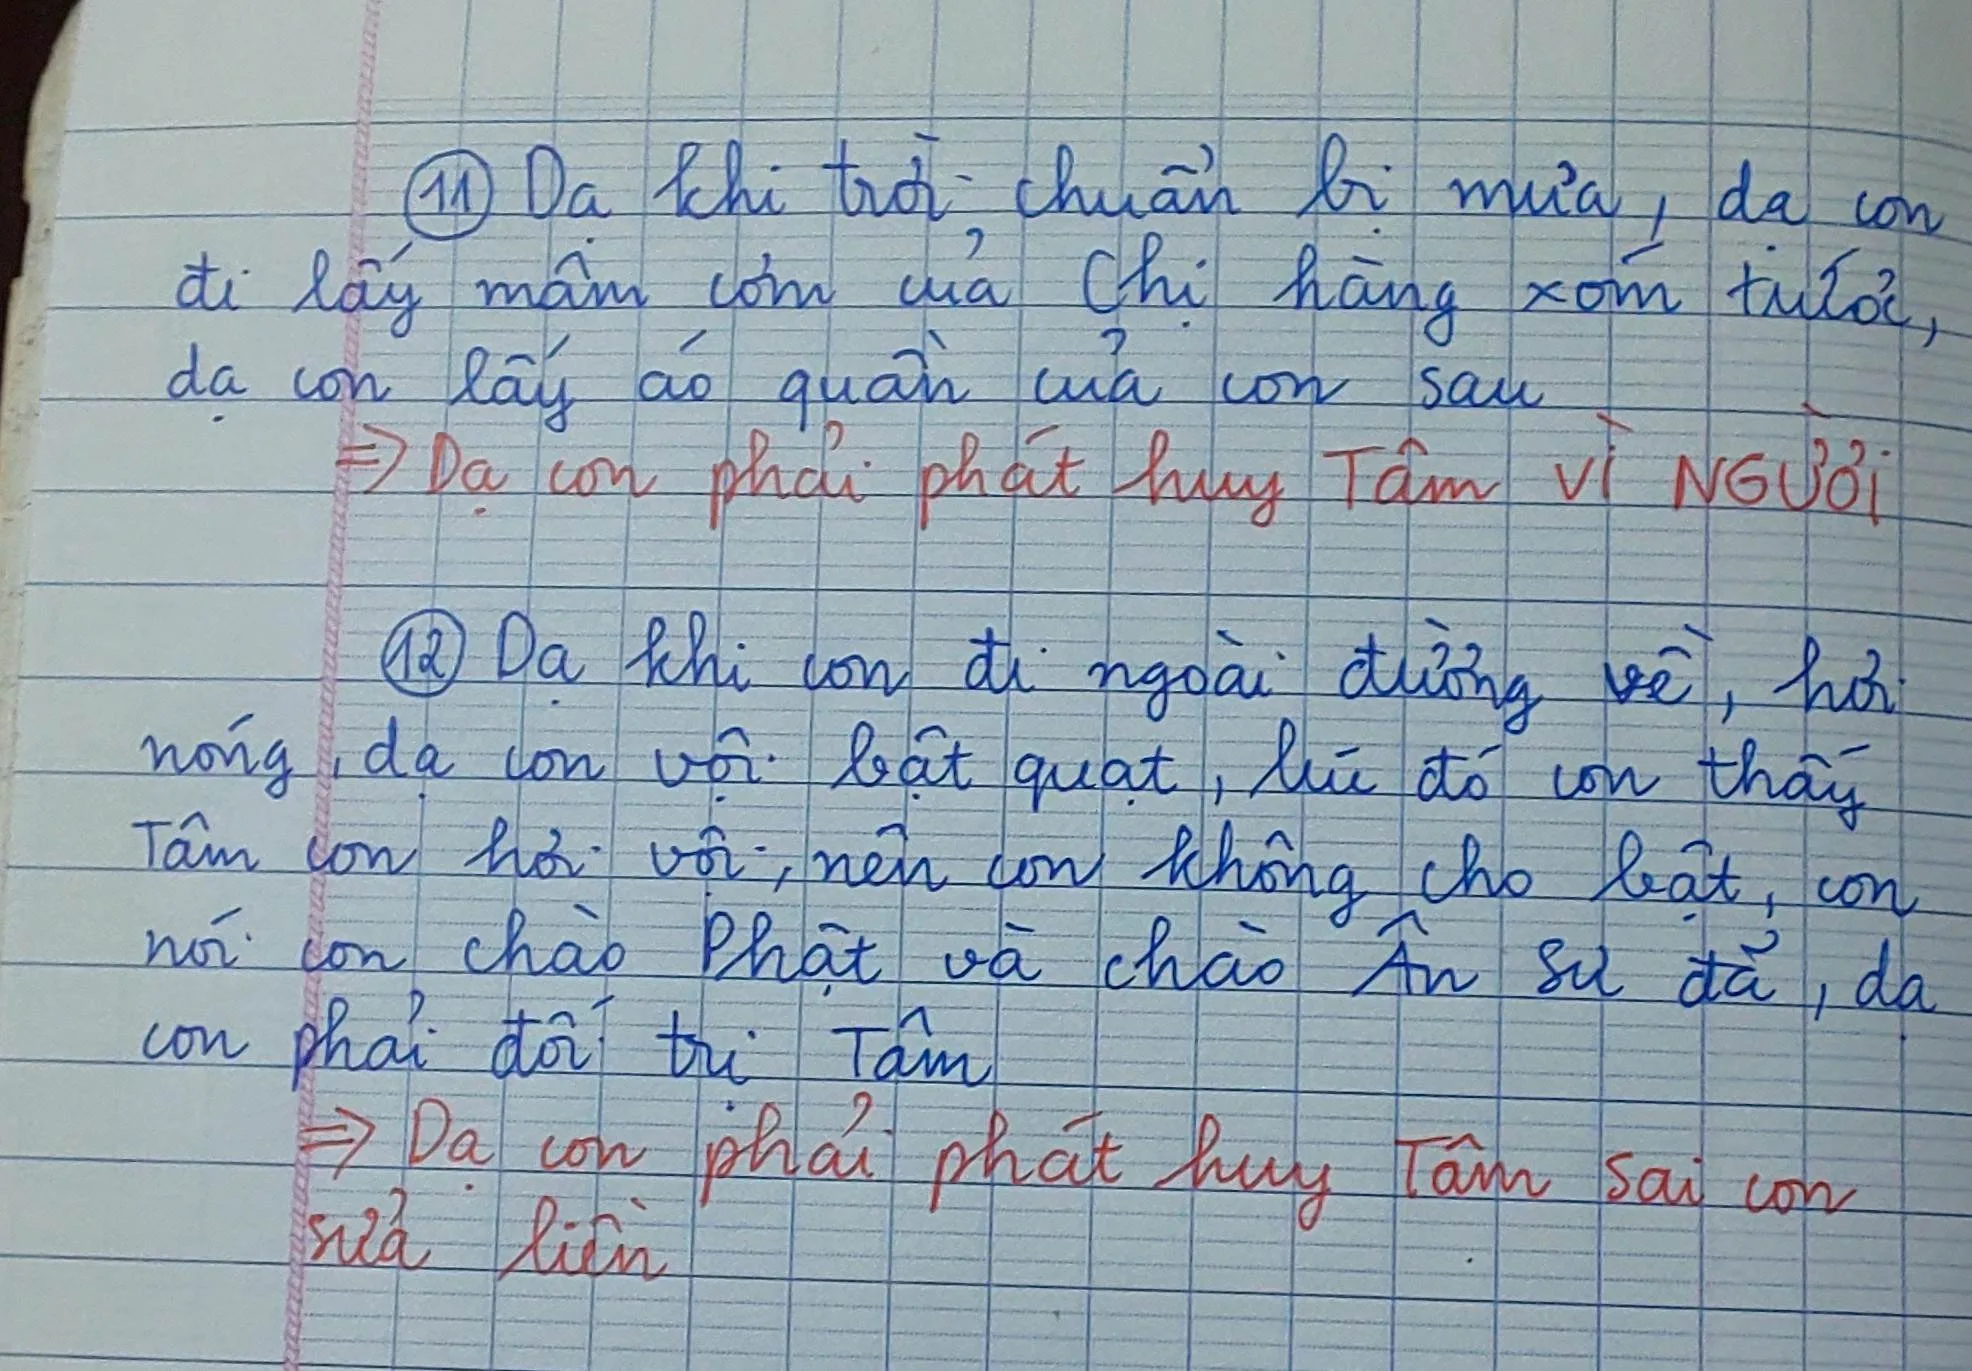 ⑪ Dạ khi trời chuẩn bị mưa, dạ con
đi lấy mâm cơm của Chị hàng xóm trước,
dạ con lấy áo quần của con sau
=> Dạ con phải phát huy Tâm VÌ NGƯỜI
⑫ Dạ khi con đi ngoài đường về, hơi
nóng, dạ con vội bật quạt, lúc đó con thấy
Tâm con hơi vội, nên con không cho bật, con
nói con chào Phật và chào Ân Sư đã, dạ
con phải đối trị Tâm
=> Dạ con phải phát huy Tâm sai con
sửa liền